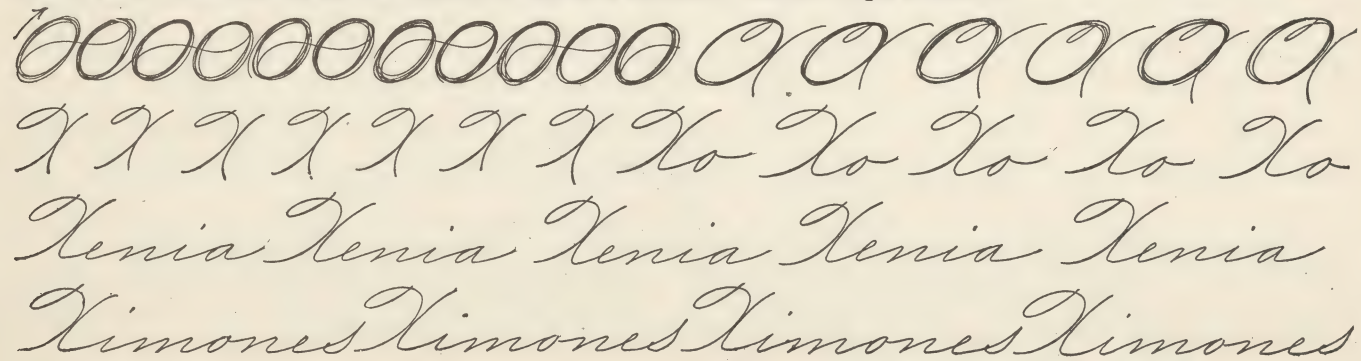 X X X X X X X Xo Xo Xo Xo Xo
Xenia Xenia Xenia Xenia Xenia
Ximones Ximones Ximones Ximones